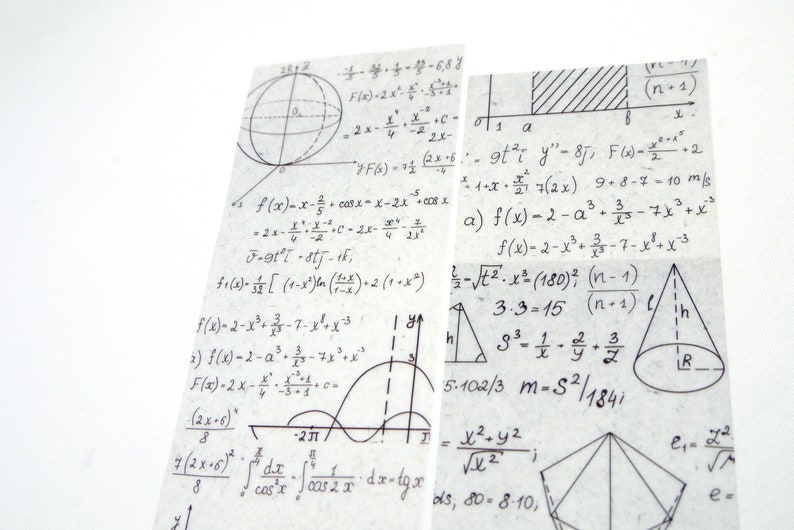 2R Z
-1/5 - 32/5 + 1/5 = 35/5 = 6,8 y
F(x) = 2x² - x⁴/4 - x⁻³⁺¹/-3+1 +
O₁
= 2x - x⁴/4 + x⁻²/-2 + c =
2x -
o
y F(x) = 7 1/2 (2x+6)/-4
x
f(x) = x - 2/5 + cosx = x - 2x⁻⁵ + cosx
= 2x - x⁴/4 · x⁻²/-2 + c = 2x - x⁴/4 - 7/2x²
v̄ = 9t²ī + 8tj̄ - 1k̄;
f₁(x) = 1/32 [ (1-x²)ln(1+x/1-x) + 2(1+x²)²
f(x) = 2 - x³ + 3/x³ - 7 - x⁸ + x⁻³
a) f(x) = 2 - a³ + 3/x³ - 7x³ + x⁻³
F(x) = 2x - x⁴/4 · x⁻³⁺¹/-3+1 + c =
y
3
·(2x+6)⁴/8
-2π
π
7(2x+6)²/8 ∫₀^π/4 dx/cos²x = ∫₀^π/4 1/cos2x · dx = tgx
y
(n-1)/(n+1)
o 1 a b x
= 9t²ī y'' = 8j̄; F(x) = x⁶⁺x⁵/2 + 2
= 1 + x + x²/2! 7(2x) 9+8-7=10 m/s
a) f(x) = 2 - a³ + 3/x³ - 7x³ + x⁻³
f(x) = 2 - x³ + 3/x³ - 7 - x⁸ + x⁻³
/2 = √t² · x³ = (180)²; (n-1)/(n+1)
3·3=15
l
h
h
S³ = 1/x + 2/y + 3/z
R
5·102/3 m = S²/184;
= x²+y²/√x² ;
e₁ = Z²/√
ds, 80 = 8·10,
e =